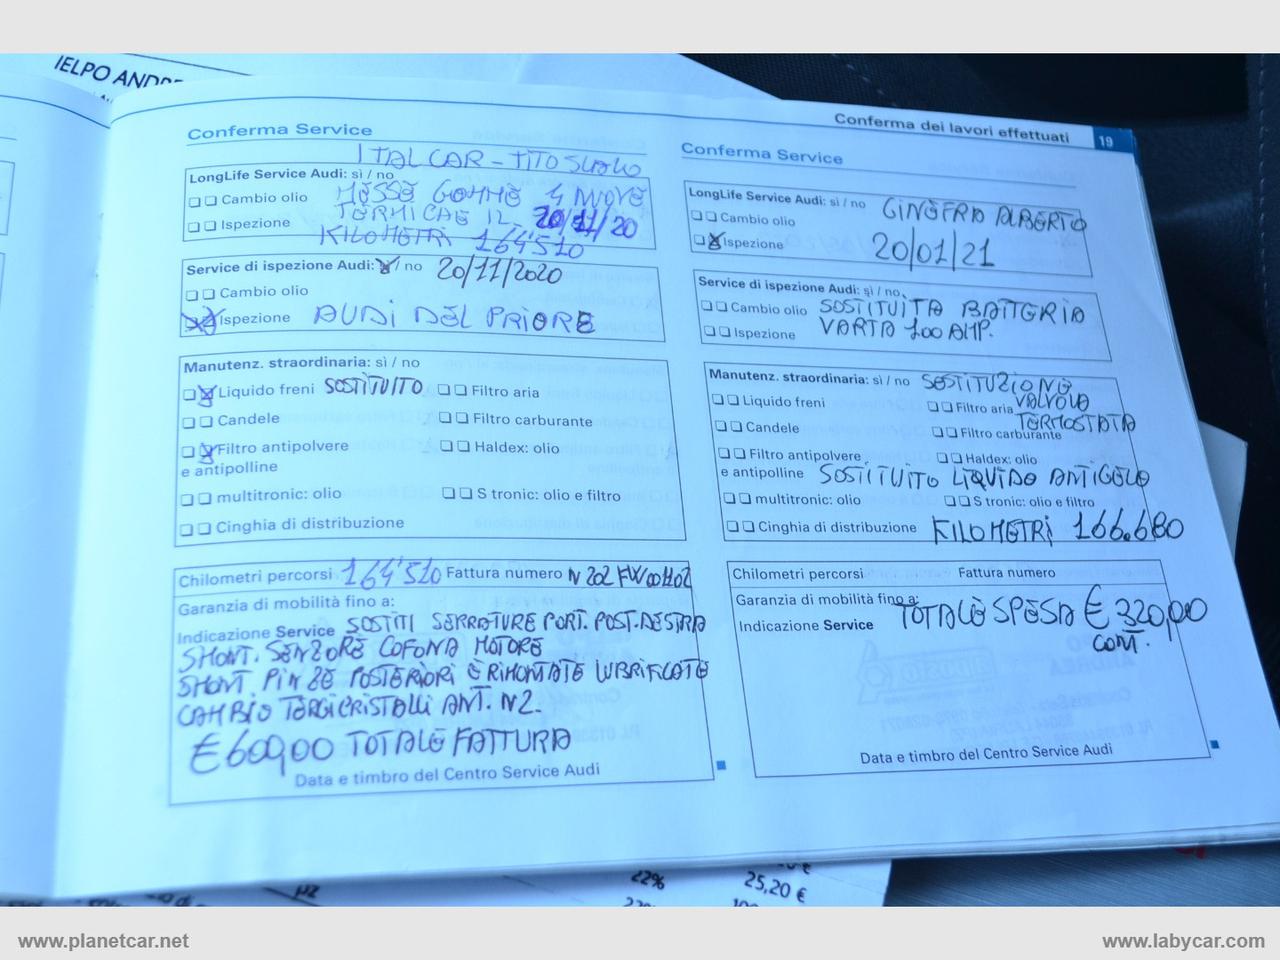 IELPO ANDRE
Conferma dei lavori effettuati 19
Conferma Service
ITALCAR - TITO SCALO
LongLife Service Audi: sì / no
MESSE GOMME 4 NUOVE
Cambio olio
TERMICHE IL 20/11/20
Ispezione
KILOMETRI 164'510
Service di ispezione Audi: sì / no 20/11/2020
Cambio olio
Ispezione AUDI DEL PRIORE
Manutenz. straordinaria: sì / no
Liquido freni SOSTITUITO Filtro aria
Candele Filtro carburante
Filtro antipolvere Haldex: olio
e antipolline
multitronic: olio S tronic: olio e filtro
Cinghia di distribuzione
Chilometri percorsi 164'510 Fattura numero N 202
Garanzia di mobilità fino a:
Indicazione Service SOSTIT SERRATURE PORT. POST. DESTRA
SMONT. SENSORE COFONA MOTORE
SMONT. PINZE POSTERIORI E RIMONTATE LUBRIFICATE
CAMBIO TERGICRISTALLI ANT. N2.
€ 600,00 TOTALE FATTURA
Data e timbro del Centro Service Audi
Conferma Service
LongLife Service Audi: sì / no GINEFRA ALBERTO
Cambio olio
Ispezione 20/01/21
Service di ispezione Audi: sì / no
Cambio olio SOSTITUITA BATTERIA
Ispezione VARTA 100 AMP.
Manutenz. straordinaria: sì / no SOSTITUZIONE
Liquido freni Filtro aria VALVOLA
TERMOSTATA
Candele Filtro carburante
Filtro antipolvere Haldex: olio
e antipolline SOSTITUITO LIQUIDO ANTIGELO
multitronic: olio S tronic: olio e filtro
Cinghia di distribuzione KILOMETRI 166.680
Chilometri percorsi Fattura numero
Garanzia di mobilità fino a:
Indicazione Service TOTALE SPESA € 320,00
CONT.
Data e timbro del Centro Service Audi
22% 25,20 €
www.planetcar.net
www.labycar.com